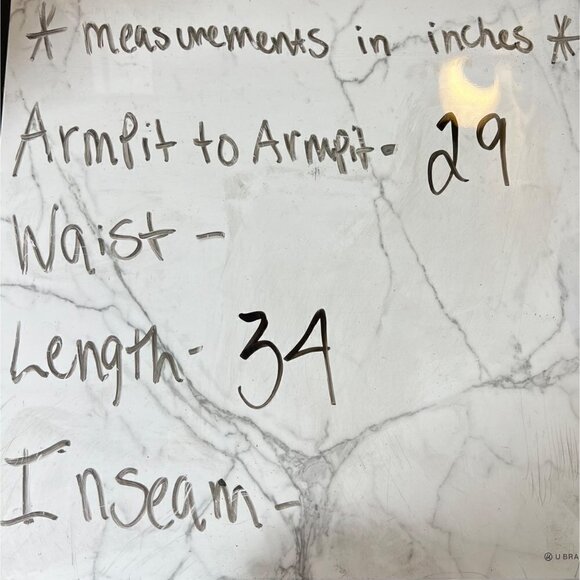 * measurements in inches *
Armpit to Armpit- 29
Waist -
Length- 34
Inseam -
U BRA